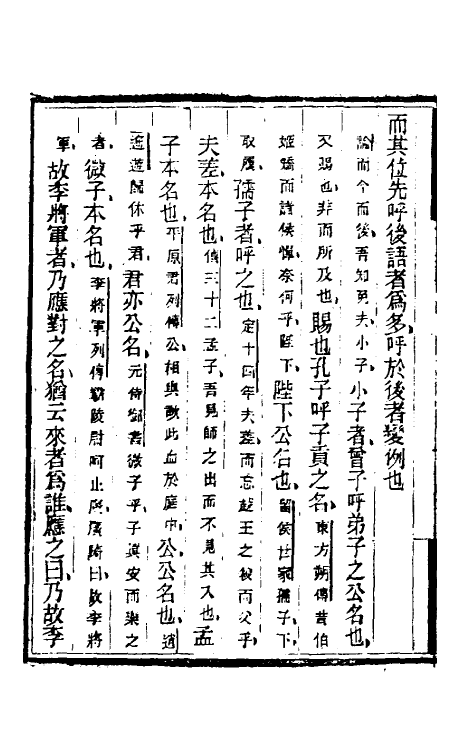 而其位先呼後語者爲多呼於後者變例也
論而今而後吾知免夫小子小子者曾子呼弟子之公名也
又賜也非而所及也賜也孔子呼子貢之名東方朔傳昔伯
姬燔而諸侯憚奈何乎陛下陛下公名也留侯世家孺子下
取履孺子者呼之也定十四年夫差而忘越王之殺而父乎
夫差本名也僖三十二孟子吾見師之出而不見其入也孟
子本名也平原君列傳公相與歃此血於庭中公公名也逍
遙遊閒休乎君君亦公名元侍御書微子乎子眞安而樂之
者微子本名也李將軍列傳霸陵尉呵止廣廣騎曰故李將
軍故李將軍者乃應對之名猶云來者爲誰應之曰乃故李